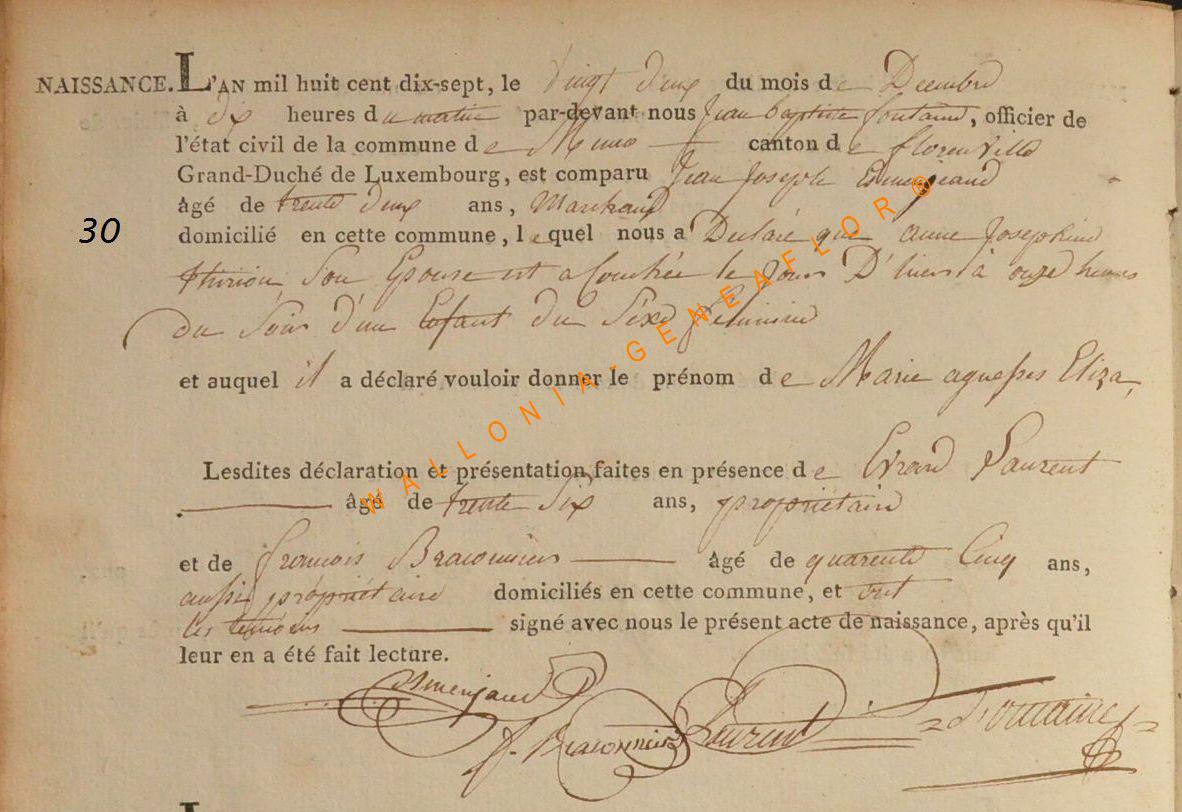 NAISSANCE. L'AN mil huit cent dix-sept, le vingt deux du mois de Decembre
à dix heures du matin par-devant nous Jean baptiste fontaine, officier de
l'état civil de la commune de Muno canton de florenville
Grand-Duché de Luxembourg, est comparu Jean Joseph Esmenjeaud
âgé de trente deux ans, Marchand
30
domicilié en cette commune, lequel nous a Declaré que anne Josephine
thirion Son Epouse est acouchée le Jour D'hier à onze heures
du Soir d'un Enfant du Sixe féminine
et auquel il a déclaré vouloir donner le prénom de Marie agnesses Eliza,
Lesdites déclaration et présentation faites en présence de Evrard Laurent
âgé de trente Six ans, propriétaire
et de françois Braconnier âgé de quarente Cinq ans,
aussi propriétaire domiciliés en cette commune, et ont
les temoins signé avec nous le présent acte de naissance, après qu'il
leur en a été fait lecture.
Esmenjaud
f. Braconnier Laurent Fontaine
WALLONIA-GENEAFLOR®